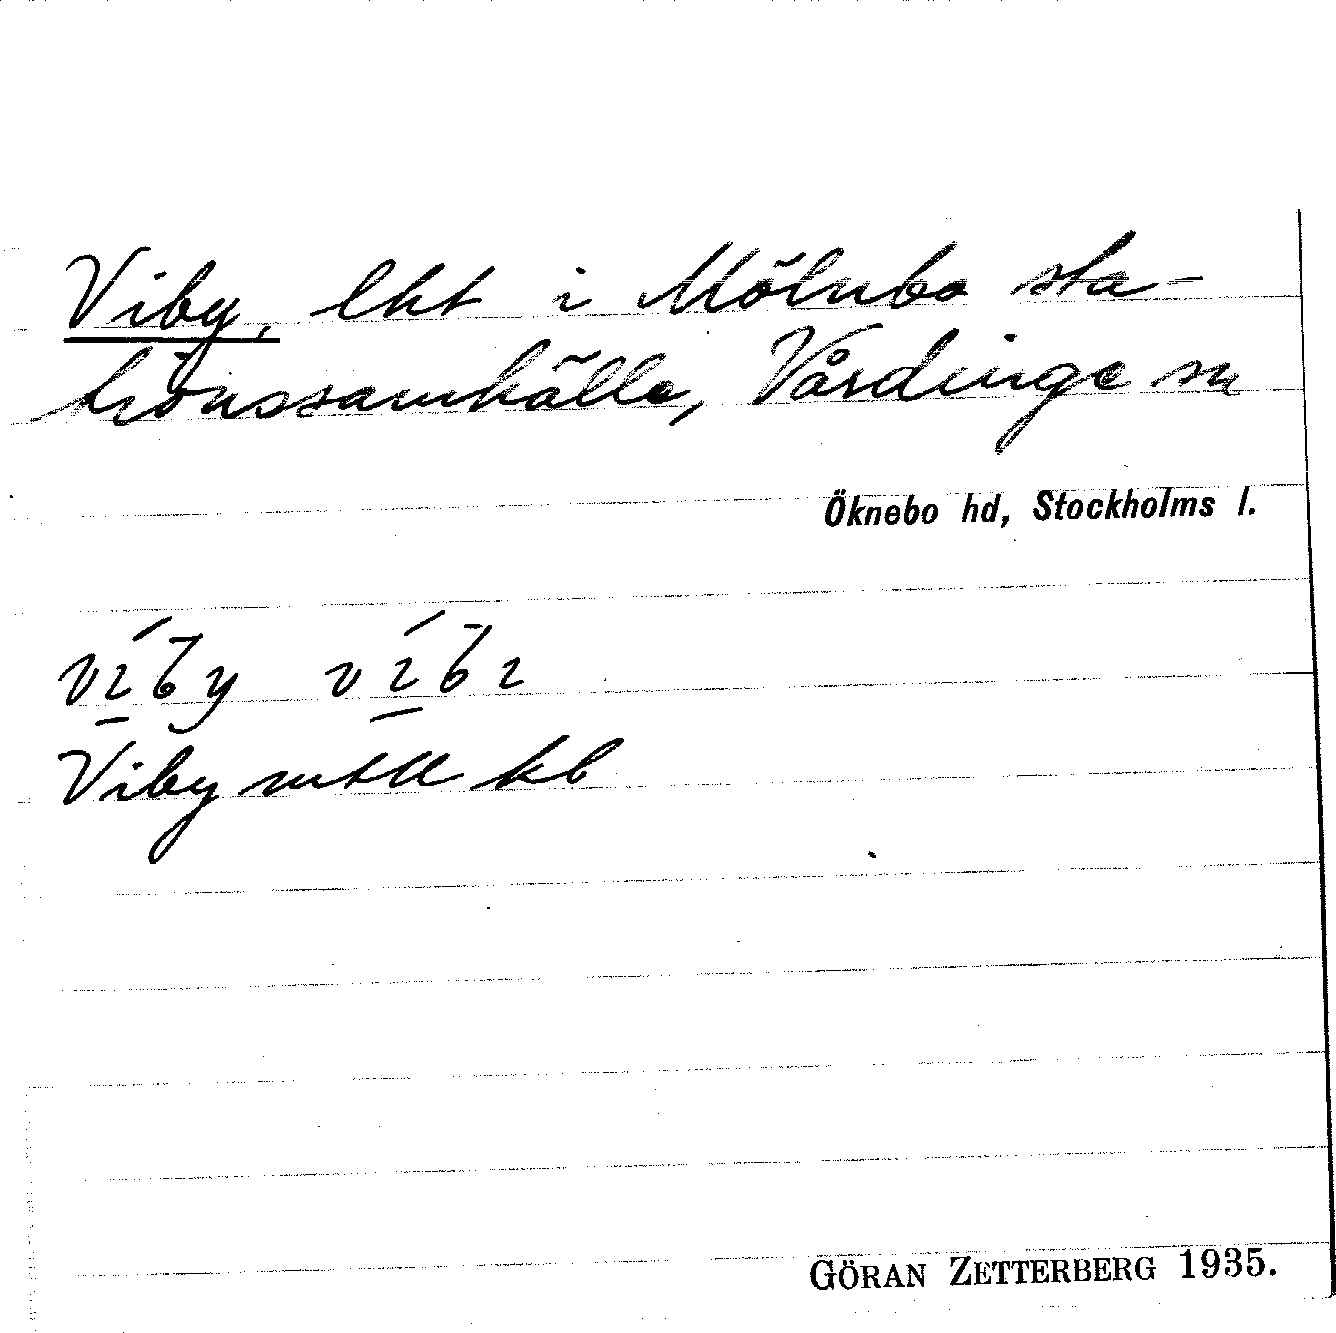 Viby, lht i Mölnbo sta-
tionssamhälle, Vårdinge sn
Öknebo hd, Stockholms l.
víby víbı
Viby mtll kb
GÖRAN ZETTERBERG 1935.